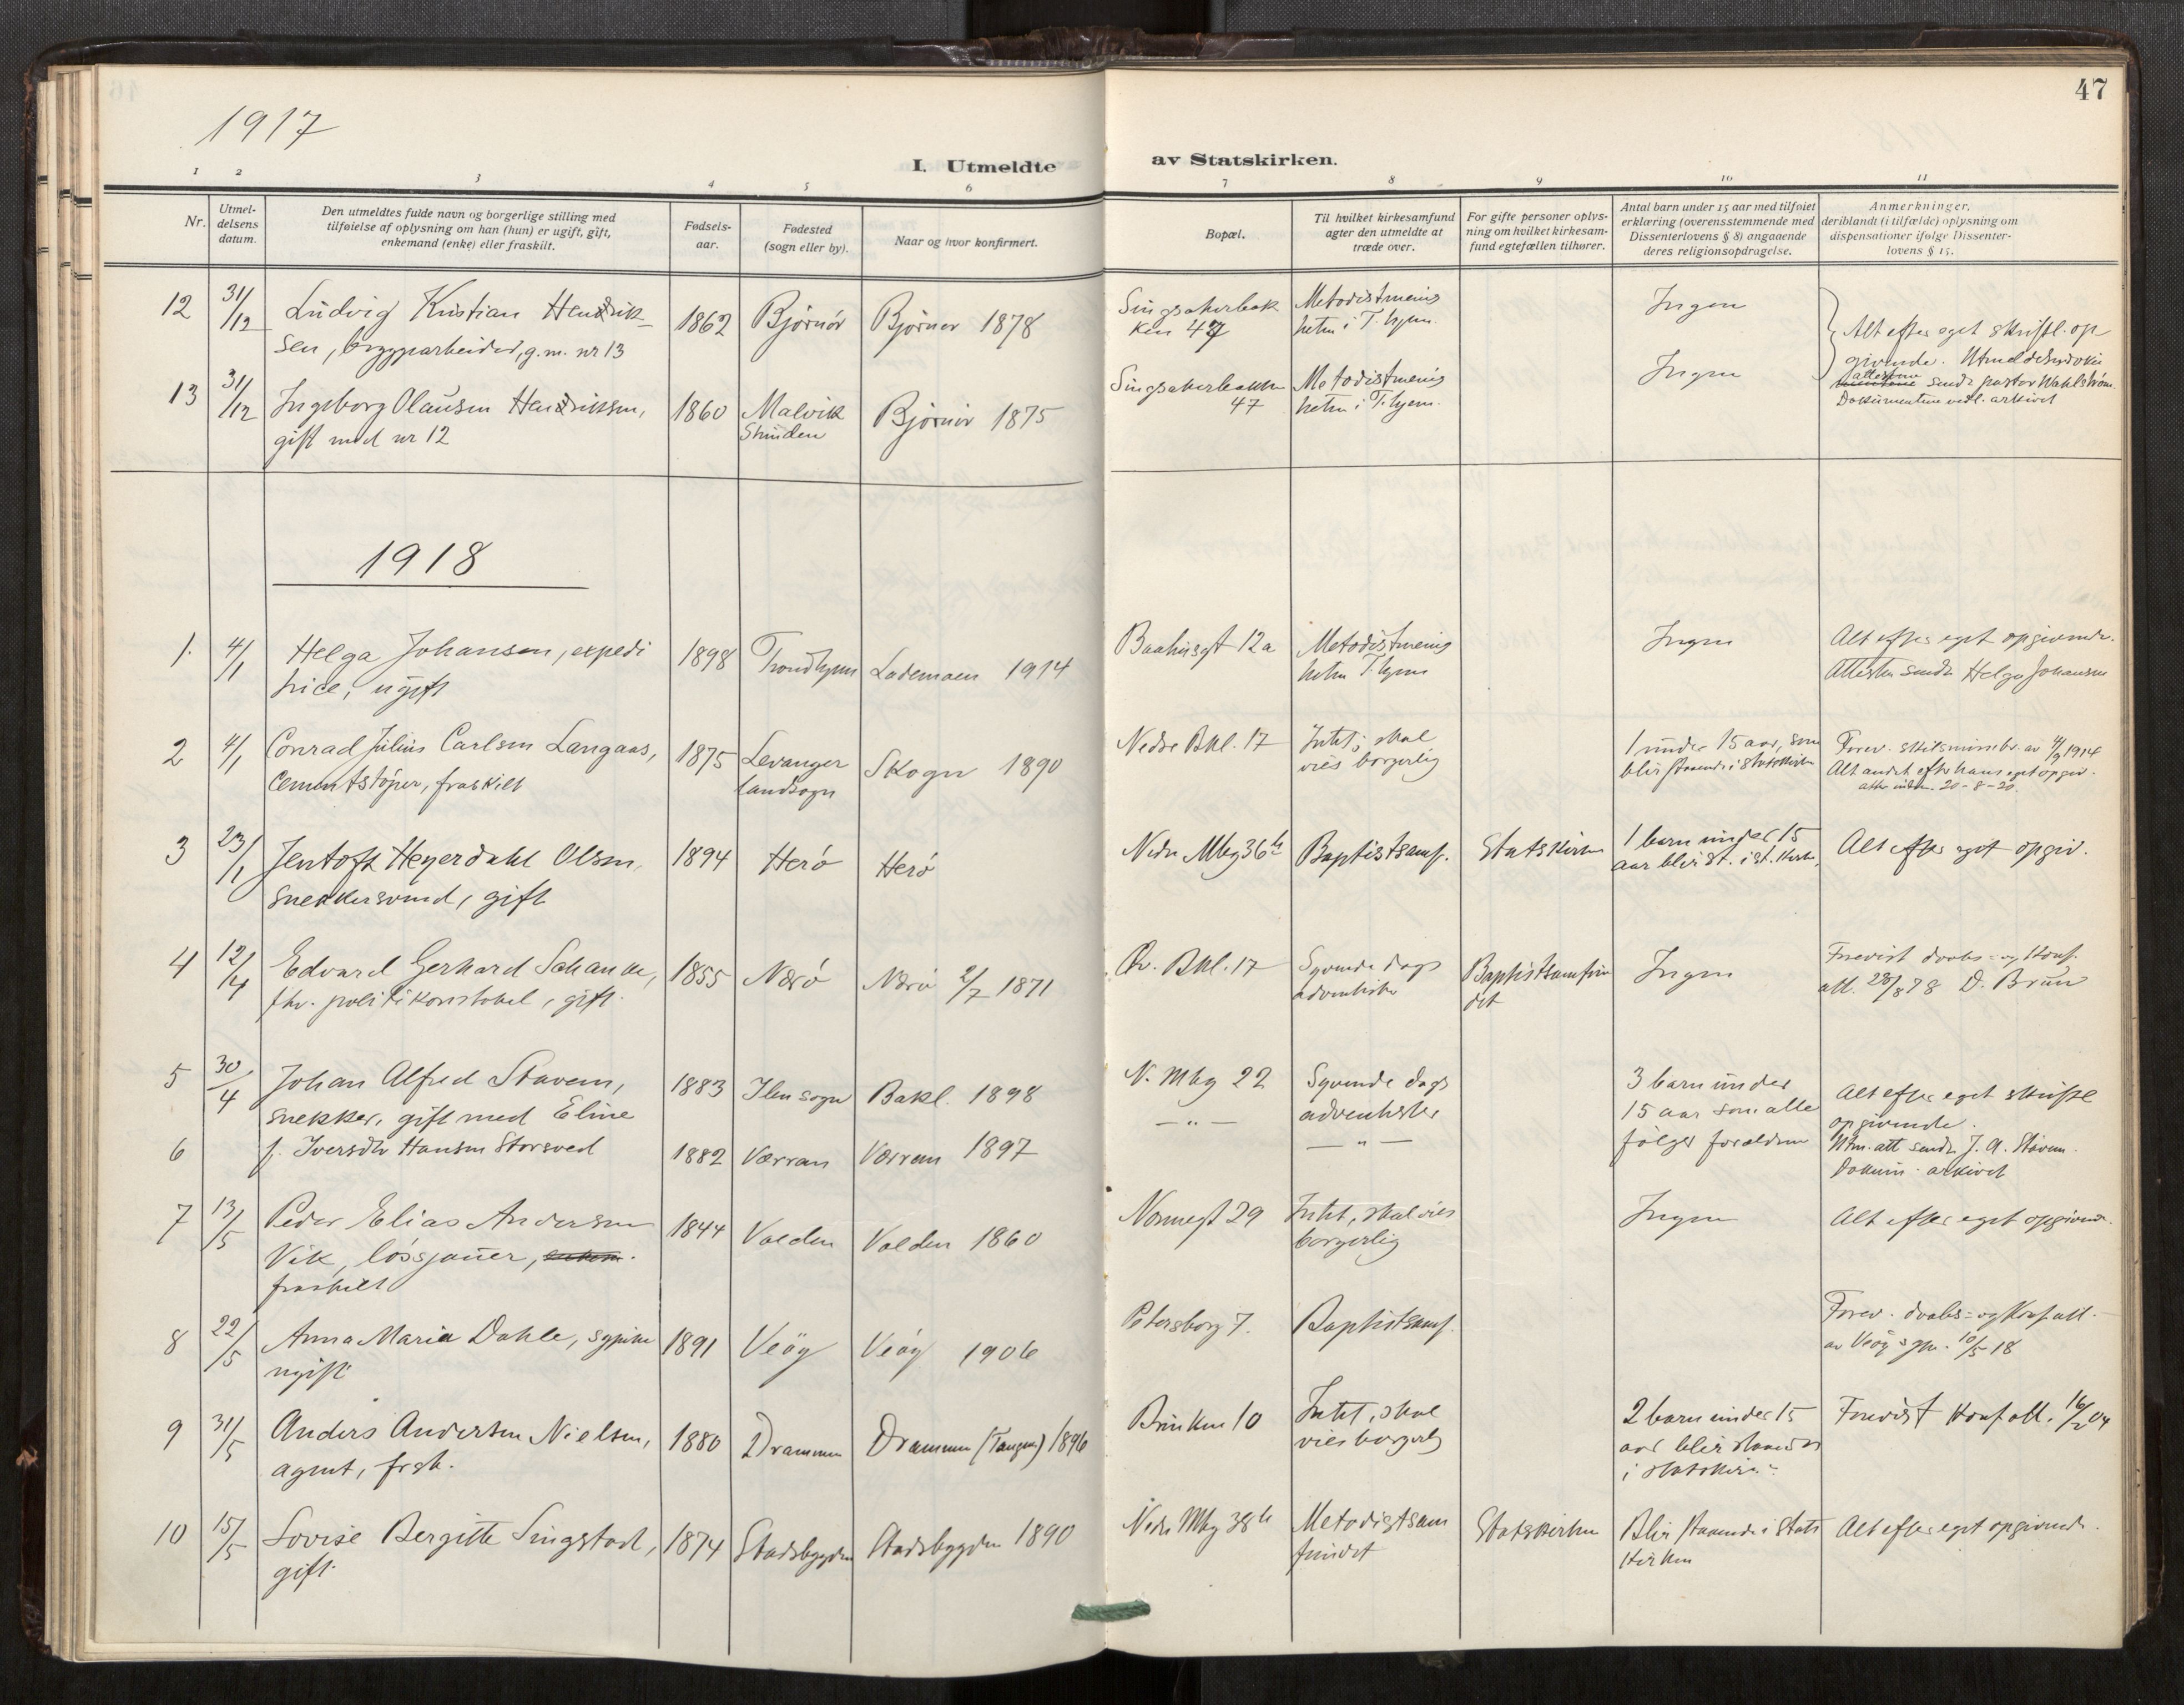 47
1917
I. Utmeldte av Statskirken.
1 2 3 4 5 6 7 8 9 10 11
Nr.
Utmel-
delsens
datum.
Den utmeldtes fulde navn og borgerlige stilling med
tilføielse af oplysning om han (hun) er ugift, gift,
enkemand (enke) eller fraskilt.
Fødsels-
aar.
Fødested
(sogn eller by).
Naar og hvor konfirmert.
Bopæl.
Til hvilket kirkesamfund
agter den utmeldte at
træde over.
For gifte personer oplys-
ning om hvilket kirkesam-
fund egtefællen tilhører.
Antal barn under 15 aar med tilføiet
erklæring (overensstemmende med
Dissenterlovens § 8) angaaende
deres religionsopdragelse.
Anmerkninger,
deriblandt (i tilfælde) oplysning om
dispensationer ifølge Dissenter-
lovens § 15.
12 31/12 Ludvig Kristian Hendrik- 1862 Bjørnör Bjørnør 1878 Singsakerbak Metodistmenig Ingen
sen, bryggarbeider, g.m. nr 13 ken 47 heten i T.hjem.
Alt efter eget skriftl. op
givende.
attestene sendt pastor Wahlstrøm.
Dokumentene vedl. arkivet
13 31/12 Ingeborg Olausen Hendriksen, 1860 Malvik Bjørnör 1875 Singsakerbakken Metodistmenig Ingen
gift med nr 12 Strinden 47 heten i T.hjem.
1918
1. 4/1 Helga Johansen, expedi 1898 Trondhjem Lademoen 1914 Baahusgt 12a Metodistmenig Ingen Alt efter eget opgivende.
trice, ugift heten T.hjem Attesten sendt Helga Johansen
2 4/1 Conrad Julius Carlsen Langaas, 1875 Levanger Skogn 1890 Nedre Bkl. 17 Intet; skal 1 under 15 aar, som Forev. skilsmissebr. av 4/9 1914
cementstöper, fraskilt landsogn vies borgerlig blir staaende i statskirken Alt andet efter hans eget opgiv.
20-8-20.
3 23/1 Jentoft Heyerdahl Olsen, 1894 Herö Herö Nedre Mbg 36b Baptistsamf. Statskirken 1 barn under 15 Alt efter eget opgiv.
snekkersvend, gift aar blir st. i st.kirk.
4 12/4 Edvard Gerhard Schanke, 1855 Nærö Nærö 2/7 1871 Öv. Bkl. 17 Syvende dags Baptistsamfun Ingen Forevist daabs- og konf.
fhv. politikonstabel, gift. adventister det att. 28/8 78 D. Bruun
5 30/4 Johan Alfred Stavem, 1883 Ilen sogn Bakl. 1898 N. Mbg 22 Syvende dags 3 barn under Alt efter eget skriftl
snekker, gift med Eline — " — adventister 15 aar som alle opgivende.
6 f. Iversdtr Hansen Storsved 1882 Værran Værran 1897 — " — følger forældrene Utm. att sendt J. A. Stavem.
Dokum. arkivet
7 13/5 Peder Elias Andersen 1844 Volden Volden 1860 Nonnegt 29 Intet, skal vies Ingen Alt efter eget opgivend.
Vik, løssjauer, borgerlig
fraskilt
8 22/5 Anna Maria Dahle, sypike 1891 Veöy Veöy 1906 Petersborg 7. Baptistsamf. Forev. daabs- og konf att.
ugift av Veöy spr. 10/5 18
9 31/5 Anders Andersen Nielsen, 1880 Drammen Drammen (Tangen) 1896 Brinken 10 Intet, skal 2 barn under 15 Forevist konf att. 16/2 04
agent, frsk. vies borgerlig aar blir staaende
i statskirk.
10 15/5 Lovise Bergitte Singstad, 1874 Stadsbygden Stadsbygden 1890 Nedre Mbg 38b Metodistsam Statskirken Blir staaende i Stats Alt efter eget opgivende.
gift. fundet kirken